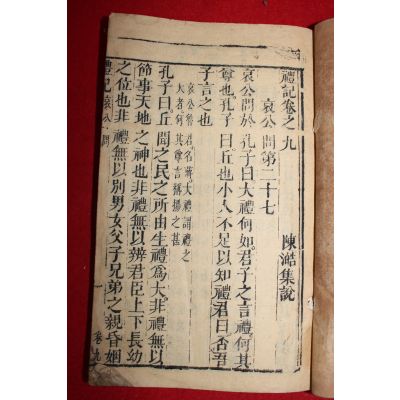 禮記卷之九
陳澔集說
哀公問第二十七
哀公問於孔子曰大禮何如君子之言禮何其
尊也孔子曰丘也小人不足以知禮君曰否吾
子言之也
哀公魯君名蔣大禮謂禮之
大者何其尊言稱揚之甚
孔子曰丘聞之民之所由生禮爲大非禮無以
節事天地之神也非禮無以辨君臣上下長幼
之位也非禮無以別男女父子兄弟之親昏姻
禮記 哀公問
卷九